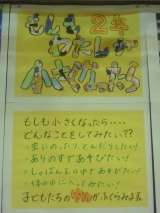 もしも 2年
わたしが
小さくなったら
もしも小さくなったら・・・・
どんなことをしてみたい??
ありのすであそびたい!
しゃぼん玉の中であそびたい
体の中に入ってみたい!
子どもたちの
がふくらみます